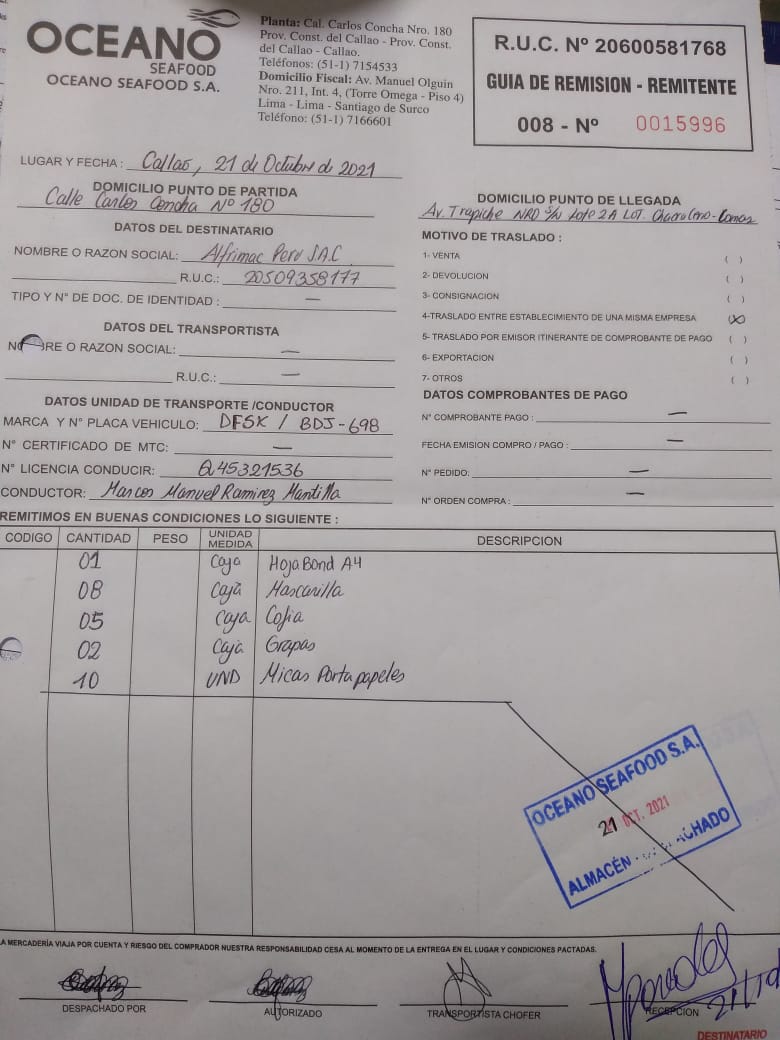 OCEANO
SEAFOOD
OCEANO SEAFOOD S.A.
Planta: Cal. Carlos Concha Nro. 180
Prov. Const. del Callao - Prov. Const.
del Callao - Callao.
Teléfonos: (51-1) 7154533
Domicilio Fiscal: Av. Manuel Olguin
Nro. 211, Int. 4, (Torre Omega - Piso 4)
Lima - Lima - Santiago de Surco
Teléfono: (51-1) 7166601
R.U.C. Nº 20600581768
GUIA DE REMISION - REMITENTE
008 - Nº 0015996
LUGAR Y FECHA : Callao, 21 de Octubre de 2021
DOMICILIO PUNTO DE PARTIDA
Calle Carlos Concha Nº 180
DOMICILIO PUNTO DE LLEGADA
Av. Trapiche NRO S/N Lote 2A LOT. Chacra Cerro - Comas
DATOS DEL DESTINATARIO
NOMBRE O RAZON SOCIAL: Alfrimac Peru S.A.C
R.U.C.: 20509358177
TIPO Y N° DE DOC. DE IDENTIDAD : —
DATOS DEL TRANSPORTISTA
NOMBRE O RAZON SOCIAL: —
R.U.C.: —
DATOS UNIDAD DE TRANSPORTE /CONDUCTOR
MARCA Y N° PLACA VEHICULO: DFSK / BDJ-698
N° CERTIFICADO DE MTC: —
N° LICENCIA CONDUCIR: Q45321536
CONDUCTOR: Marcos Manuel Ramirez Mantilla
MOTIVO DE TRASLADO :
1- VENTA ( )
2- DEVOLUCION ( )
3- CONSIGNACION ( )
4-TRASLADO ENTRE ESTABLECIMIENTO DE UNA MISMA EMPRESA (X)
5- TRASLADO POR EMISOR ITINERANTE DE COMPROBANTE DE PAGO ( )
6- EXPORTACION ( )
7- OTROS ( )
DATOS COMPROBANTES DE PAGO
N° COMPROBANTE PAGO : —
FECHA EMISION COMPRO / PAGO : —
N° PEDIDO: —
N° ORDEN COMPRA : —
REMITIMOS EN BUENAS CONDICIONES LO SIGUIENTE :
CODIGO CANTIDAD PESO UNIDAD MEDIDA DESCRIPCION
01 Caja Hoja Bond A4
08 Caja Mascarilla
05 Caja Cofia
02 Caja Grapas
10 UND Micas Porta papeles
OCEANO SEAFOOD S.A.
21 OCT. 2021
ALMACÉN
LA MERCADERÍA VIAJA POR CUENTA Y RIESGO DEL COMPRADOR NUESTRA RESPONSABILIDAD CESA AL MOMENTO DE LA ENTREGA EN EL LUGAR Y CONDICIONES PACTADAS.
DESPACHADO POR
AUTORIZADO
TRANSPORTISTA CHOFER
RECEPCION
DESTINATARIO